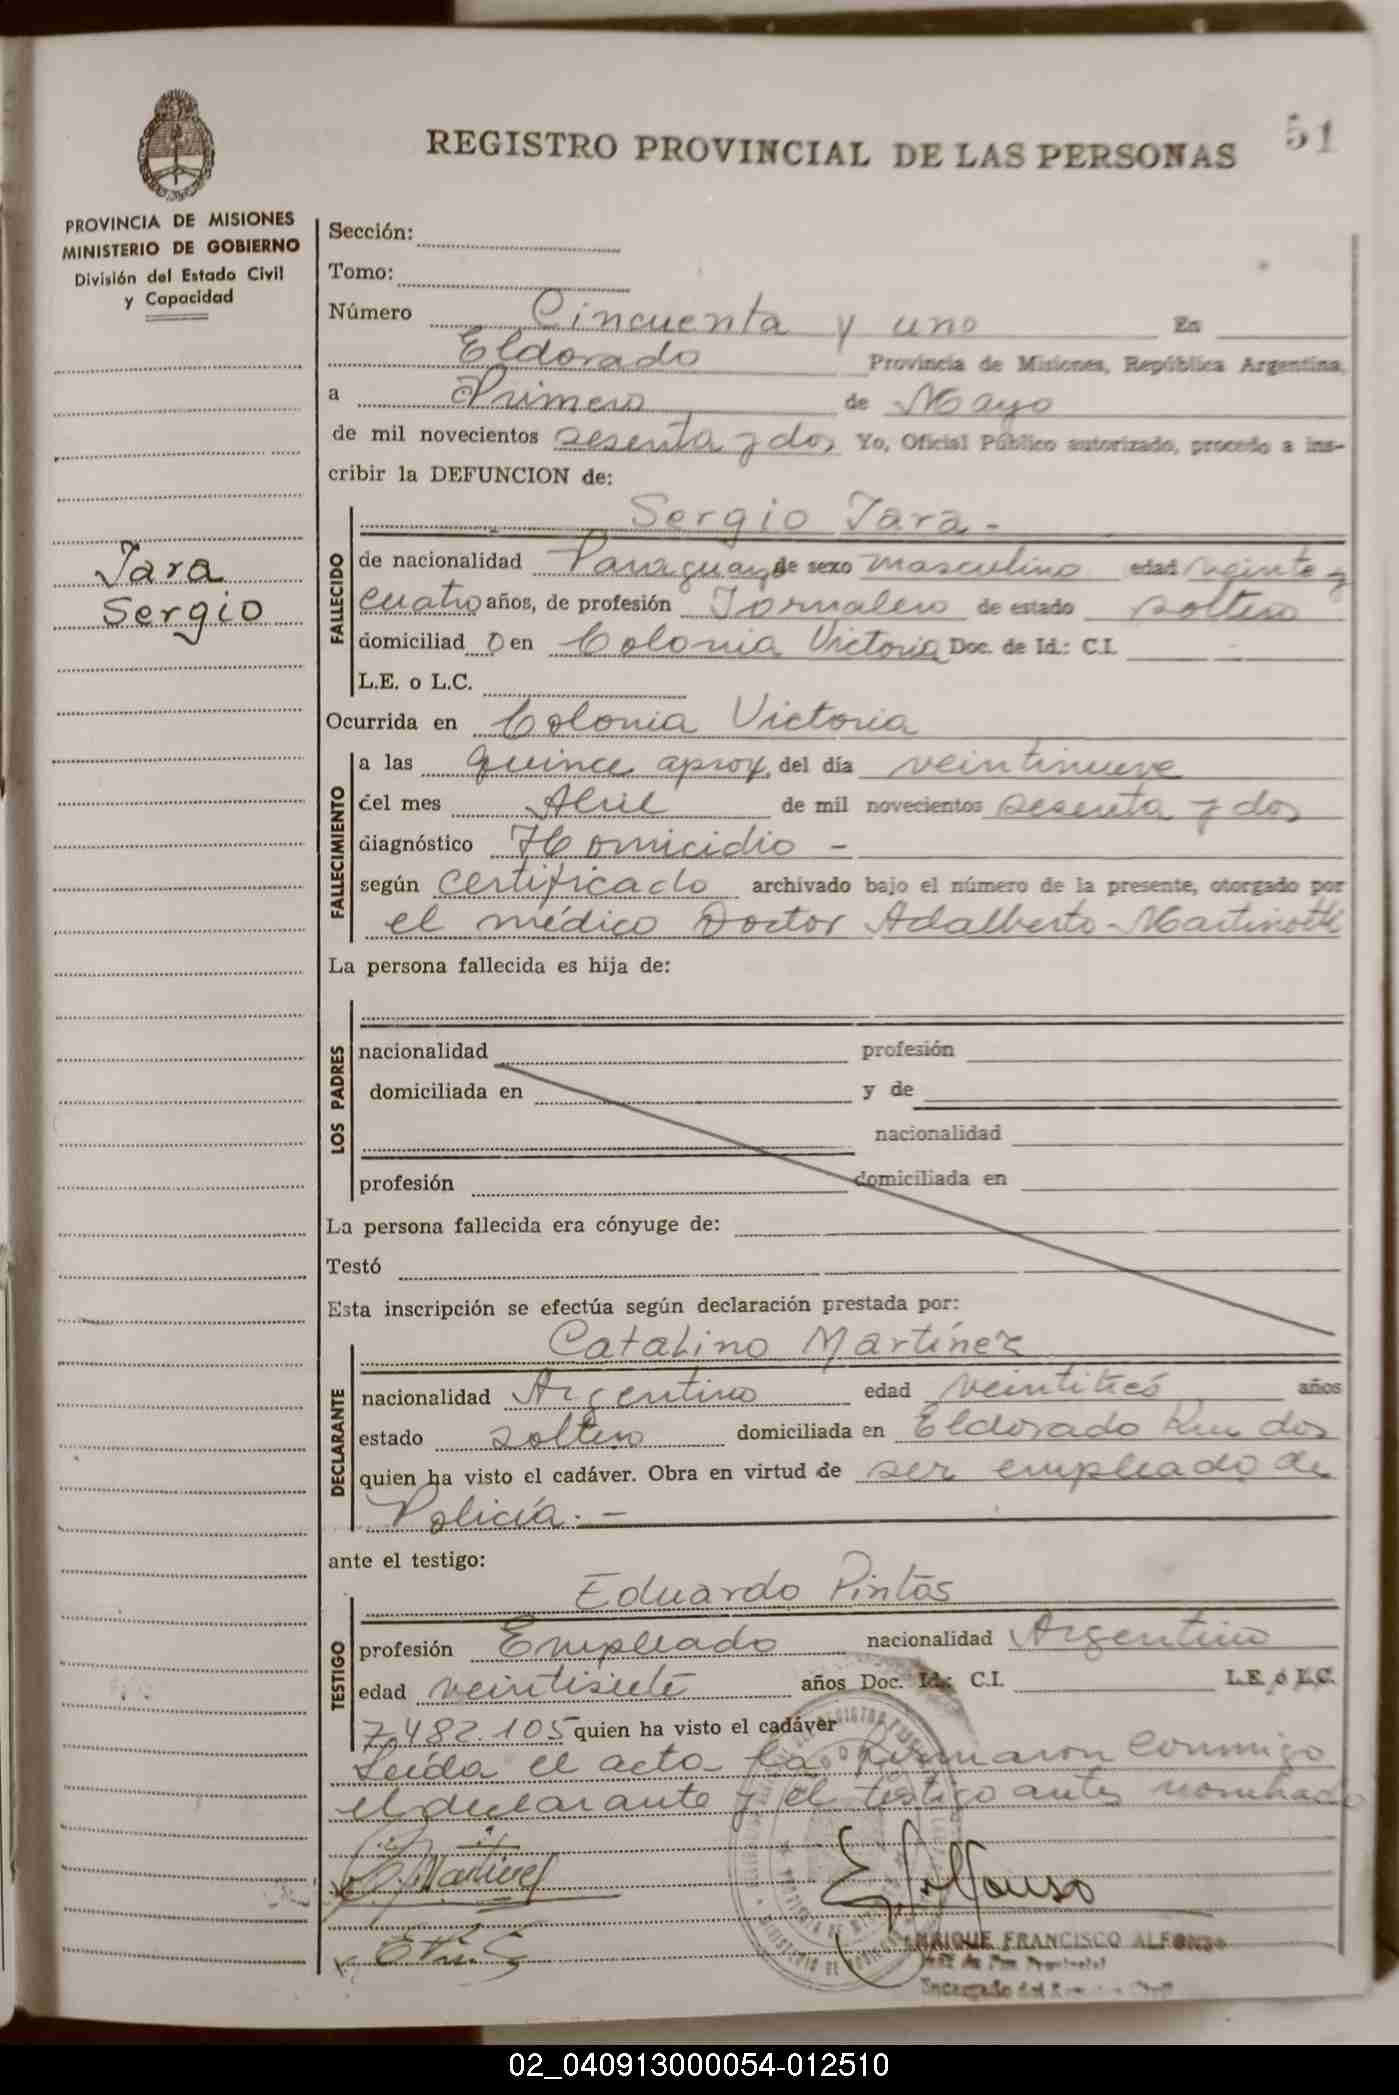 REGISTRO PROVINCIAL DE LAS PERSONAS
51
PROVINCIA DE MISIONES
MINISTERIO DE GOBIERNO
División del Estado Civil
y Capacidad
Jara
Sergio
Sección:
Tomo:
Número Cincuenta y uno En
Eldorado Provincia de Misiones, República Argentina,
a Primero de Mayo
de mil novecientos sesenta y dos Yo, Oficial Público autorizado, procedo a ins-
cribir la DEFUNCION de:
FALLECIDO
Sergio Jara -
de nacionalidad Paraguayo de sexo masculino edad veinte y
cuatro años, de profesión Jornalero de estado soltero
domiciliad o en Colonia Victoria Doc. de Id.: C.I. -
L.E. o L.C.
Ocurrida en Colonia Victoria
FALLECIMIENTO
a las quince aprox. del día veintinueve
del mes Abril de mil novecientos sesenta y dos
diagnóstico Homicidio -
según certificado archivado bajo el número de la presente, otorgado por
el médico Doctor Adalberto Martinotti
La persona fallecida es hija de:
LOS PADRES
nacionalidad profesión
domiciliada en y de
nacionalidad
profesión domiciliada en
La persona fallecida era cónyuge de:
Testó
Esta inscripción se efectúa según declaración prestada por:
DECLARANTE
Catalino Martínez
nacionalidad Argentino edad veintitrés años
estado soltero domiciliada en Eldorado Km dos
quien ha visto el cadáver. Obra en virtud de ser empleado de
Policía. -
ante el testigo:
TESTIGO
Eduardo Pintos
profesión Empleado nacionalidad Argentino
edad veintisiete años Doc. Id.: C.I. L.E. ó L.C.
7.482.105 quien ha visto el cadáver
Leída el acta la firmaron conmigo
el declarante y el testigo antes nombrado
C. Martínez
E. Alfonso
ENRIQUE FRANCISCO ALFONSO
02_040913000054-012510